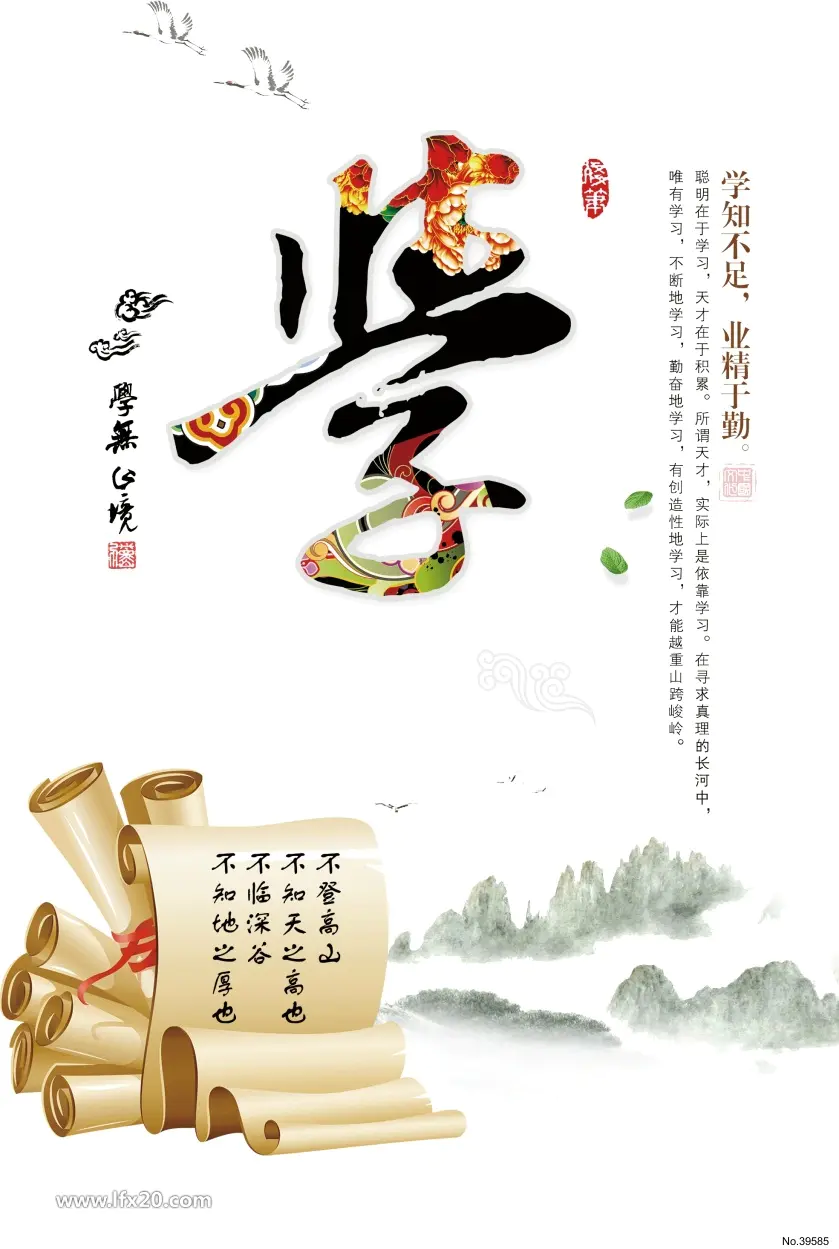 学
学知不足，业精于勤。
聪明在于学习，天才在于积累。所谓天才，实际上是依靠学习。在寻求真理的长河中，
唯有学习，不断地学习，勤奋地学习，有创造性地学习，才能越重山跨峻岭。
學無止境
不登高山
不知天之高也
不临深谷
不知地之厚也
www.lfx20.com
No.39585